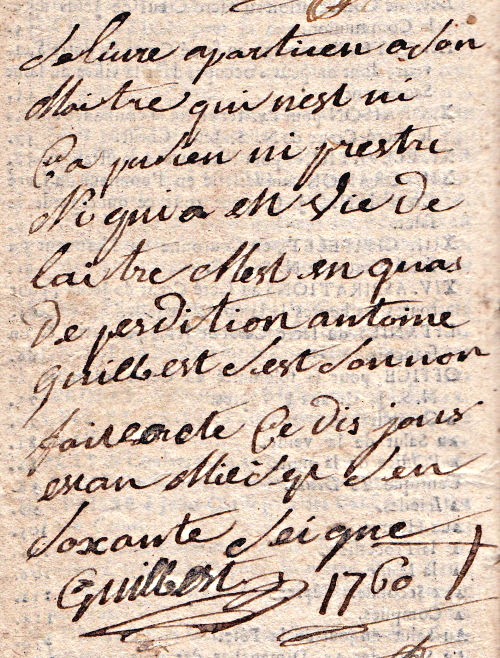 Se livre apartien a Son
Maitre qui nest ni
Capusien ni prestre
Ni qui a en Vie de
laitre Mest en quas
De perdition antoine
guilbert Sest Son non
fait ce Ce dis jour
esan Mil Sept Sen
Soxante Seigne
Guilbert 1760